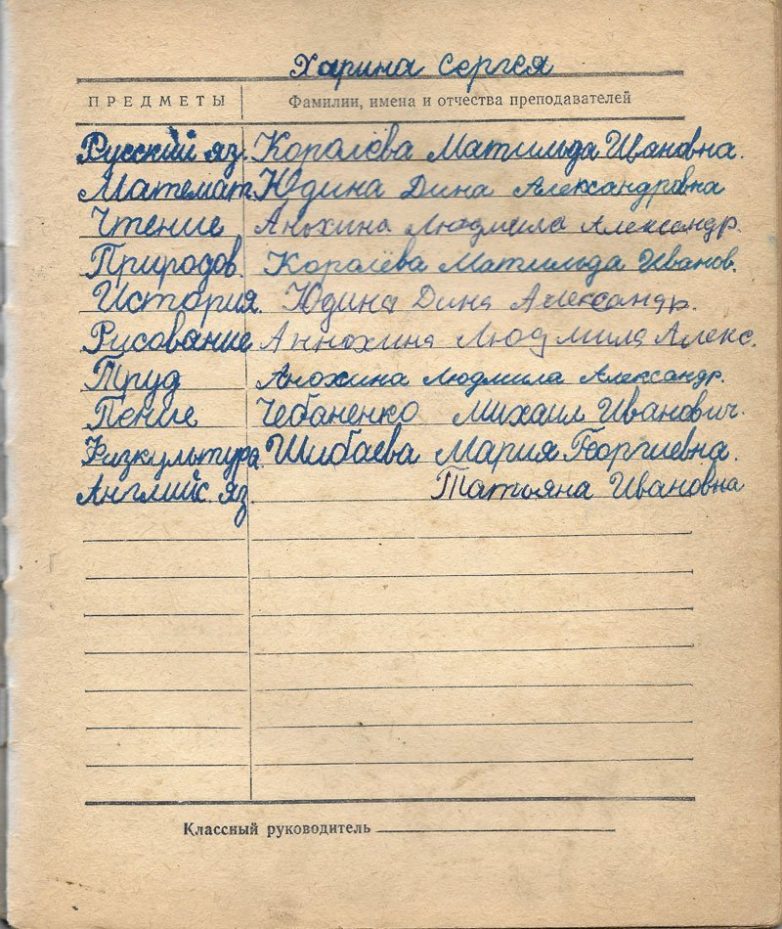 Харина Сергея
ПРЕДМЕТЫ Фамилии, имена и отчества преподавателей
Русский яз. Королёва Матильда Ивановна.
Математ. Юдина Дина Александровна
Чтение Анохина Людмила Александр.
Природов. Королёва Матильда Иванов.
История. Юдина Дина Александр.
Рисование Аннохина Людмила Алекс.
Труд Анохина Людмила Александр.
Пение Чебаненко Михаил Иванович.
Физкультура. Шибаева Мария Георгиевна.
Английс. яз. Татьяна Ивановна
Классный руководитель